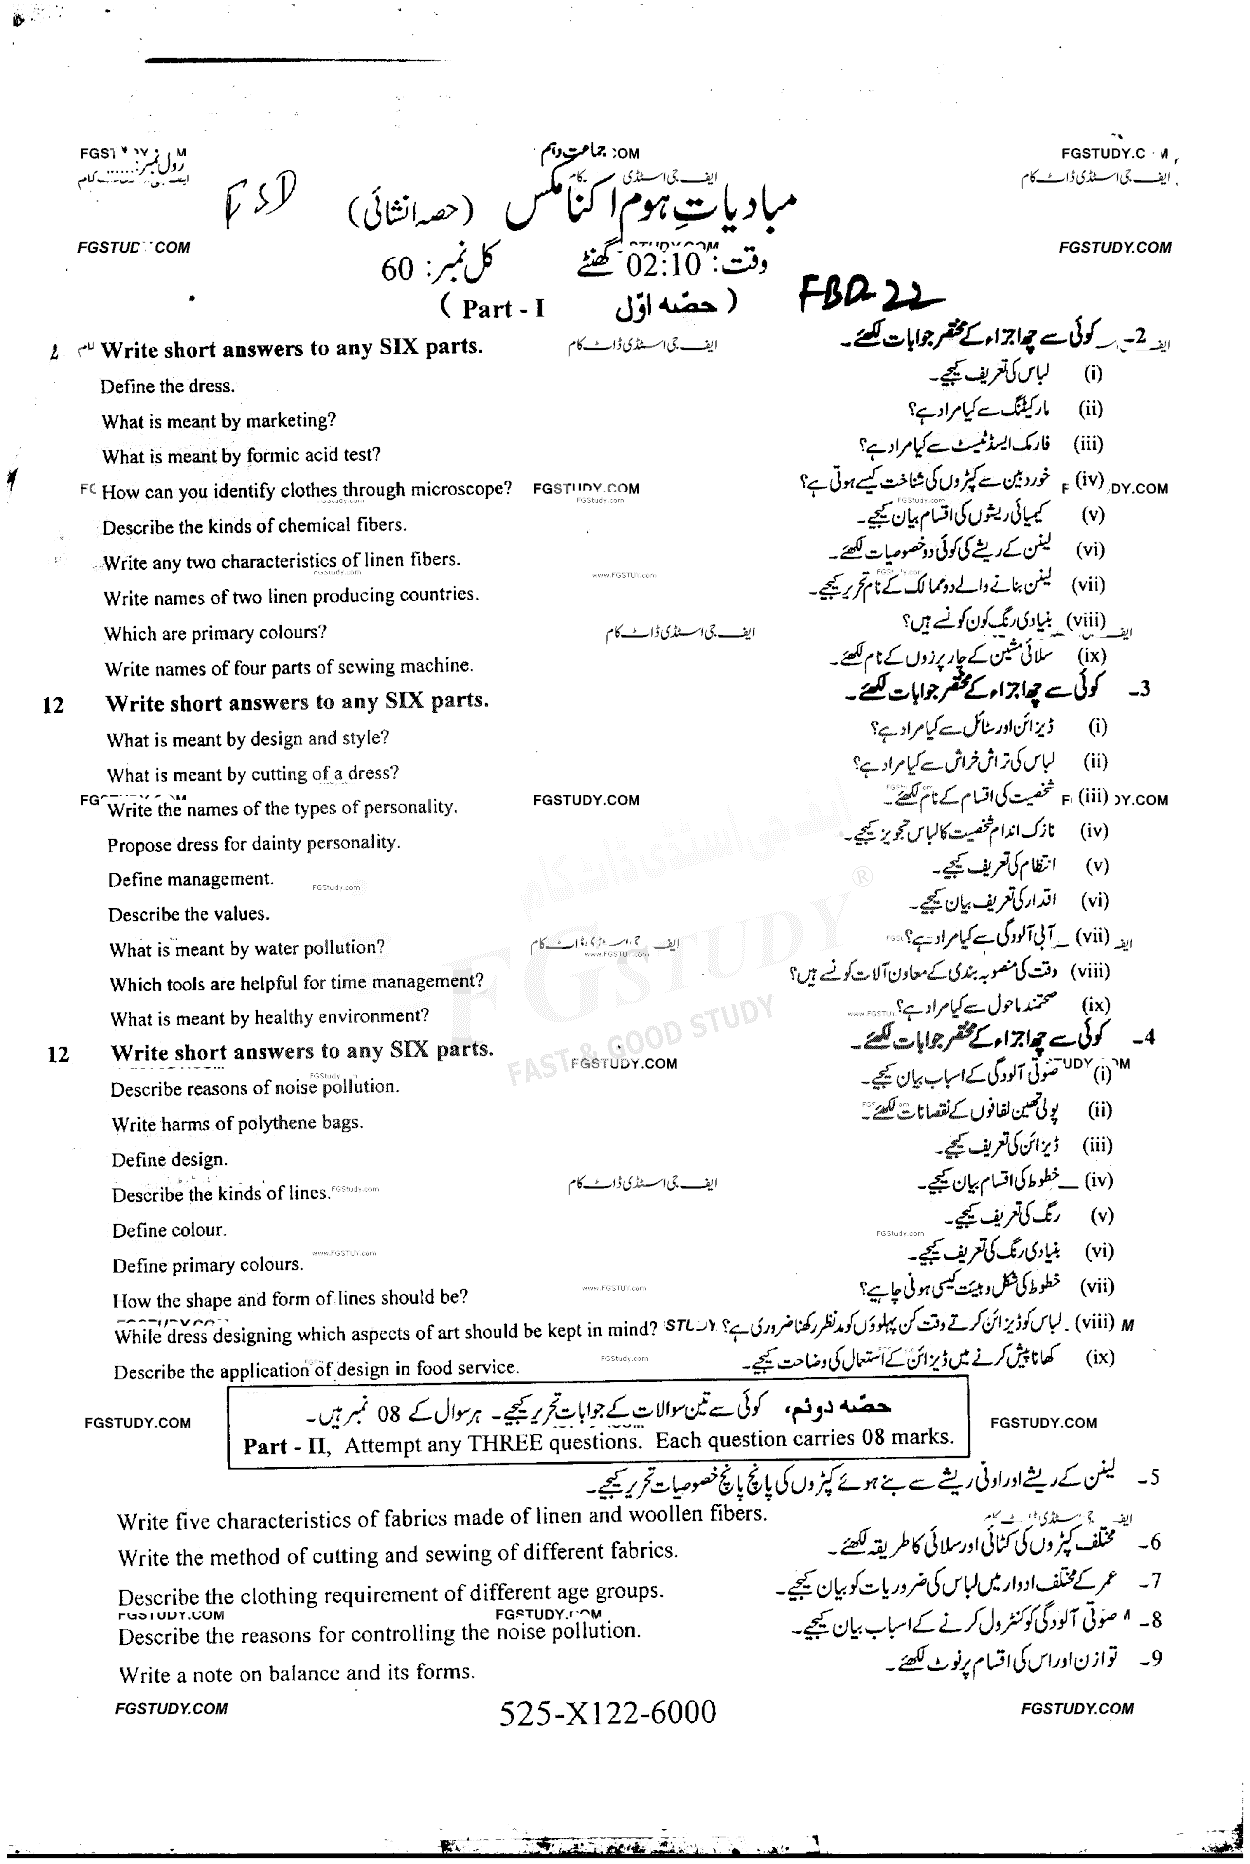 جماعت دہم
رول نمبر:......
FSD
مبادیاتِ ہوم اکنامکس (حصہ انشائی)
وقت: 02:10 گھنٹے کل نمبر: 60
(Part - I حصّہ اوّل)
FBD-22
Write short answers to any SIX parts. 2- کوئی سے چھ اجزاء کے مختصر جوابات لکھئے۔
Define the dress. (i) لباس کی تعریف کیجیے۔
What is meant by marketing? (ii) مارکیٹنگ سے کیا مراد ہے؟
What is meant by formic acid test? (iii) فارمک ایسڈ ٹیسٹ سے کیا مراد ہے؟
How can you identify clothes through microscope? (iv) خوردبین سے کپڑوں کی شناخت کیسے ہوتی ہے؟
Describe the kinds of chemical fibers. (v) کیمیائی ریشوں کی اقسام بیان کیجیے۔
Write any two characteristics of linen fibers. (vi) لینن کے ریشے کی کوئی دو خصوصیات لکھئے۔
Write names of two linen producing countries. (vii) لینن بنانے والے دو ممالک کے نام تحریر کیجیے۔
Which are primary colours? (viii) بنیادی رنگ کون کونسے ہیں؟
Write names of four parts of sewing machine. (ix) سلائی مشین کے چار پرزوں کے نام لکھئے۔
12 Write short answers to any SIX parts. 3- کوئی سے چھ اجزاء کے مختصر جوابات لکھئے۔
What is meant by design and style? (i) ڈیزائن اور سٹائل سے کیا مراد ہے؟
What is meant by cutting of a dress? (ii) لباس کی تراش خراش سے کیا مراد ہے؟
Write the names of the types of personality. (iii) شخصیت کی اقسام کے نام لکھئے۔
Propose dress for dainty personality. (iv) نازک اندام شخصیت کا لباس تجویز کیجیے۔
Define management. (v) انتظام کی تعریف کیجیے۔
Describe the values. (vi) اقدار کی تعریف بیان کیجیے۔
What is meant by water pollution? (vii) آبی آلودگی سے کیا مراد ہے؟
Which tools are helpful for time management? (viii) وقت کی منصوبہ بندی کے معاون آلات کونسے ہیں؟
What is meant by healthy environment? (ix) صحتمند ماحول سے کیا مراد ہے؟
12 Write short answers to any SIX parts. 4- کوئی سے چھ اجزاء کے مختصر جوابات لکھئے۔
Describe reasons of noise pollution. (i) صوتی آلودگی کے اسباب بیان کیجیے۔
Write harms of polythene bags. (ii) پولی تھین لفافوں کے نقصانات لکھئے۔
Define design. (iii) ڈیزائن کی تعریف کیجیے۔
Describe the kinds of lines. (iv) خطوط کی اقسام بیان کیجیے۔
Define colour. (v) رنگ کی تعریف کیجیے۔
Define primary colours. (vi) بنیادی رنگ کی تعریف کیجیے۔
How the shape and form of lines should be? (vii) خطوط کی شکل و ہیئت کیسی ہونی چاہیے؟
While dress designing which aspects of art should be kept in mind? (viii) لباس کو ڈیزائن کرتے وقت کن پہلوؤں کو مدنظر رکھنا ضروری ہے؟
Describe the application of design in food service. (ix) کھانا پیش کرنے میں ڈیزائن کے استعمال کی وضاحت کیجیے۔
حصّہ دوئم، کوئی سے تین سوالات کے جوابات تحریر کیجیے۔ ہر سوال کے 08 نمبر ہیں۔
Part - II, Attempt any THREE questions. Each question carries 08 marks.
5- لینن کے ریشے اور اونی ریشے سے بنے ہوئے کپڑوں کی پانچ پانچ خصوصیات تحریر کیجیے۔
Write five characteristics of fabrics made of linen and woollen fibers.
Write the method of cutting and sewing of different fabrics. 6- مختلف کپڑوں کی کٹائی اور سلائی کا طریقہ لکھئے۔
Describe the clothing requirement of different age groups. 7- عمر کے مختلف ادوار میں لباس کی ضروریات کو بیان کیجیے۔
Describe the reasons for controlling the noise pollution. 8- صوتی آلودگی کو کنٹرول کرنے کے اسباب بیان کیجیے۔
Write a note on balance and its forms. 9- توازن اور اس کی اقسام پر نوٹ لکھئے۔
FGSTUDY.COM 525-X122-6000 FGSTUDY.COM